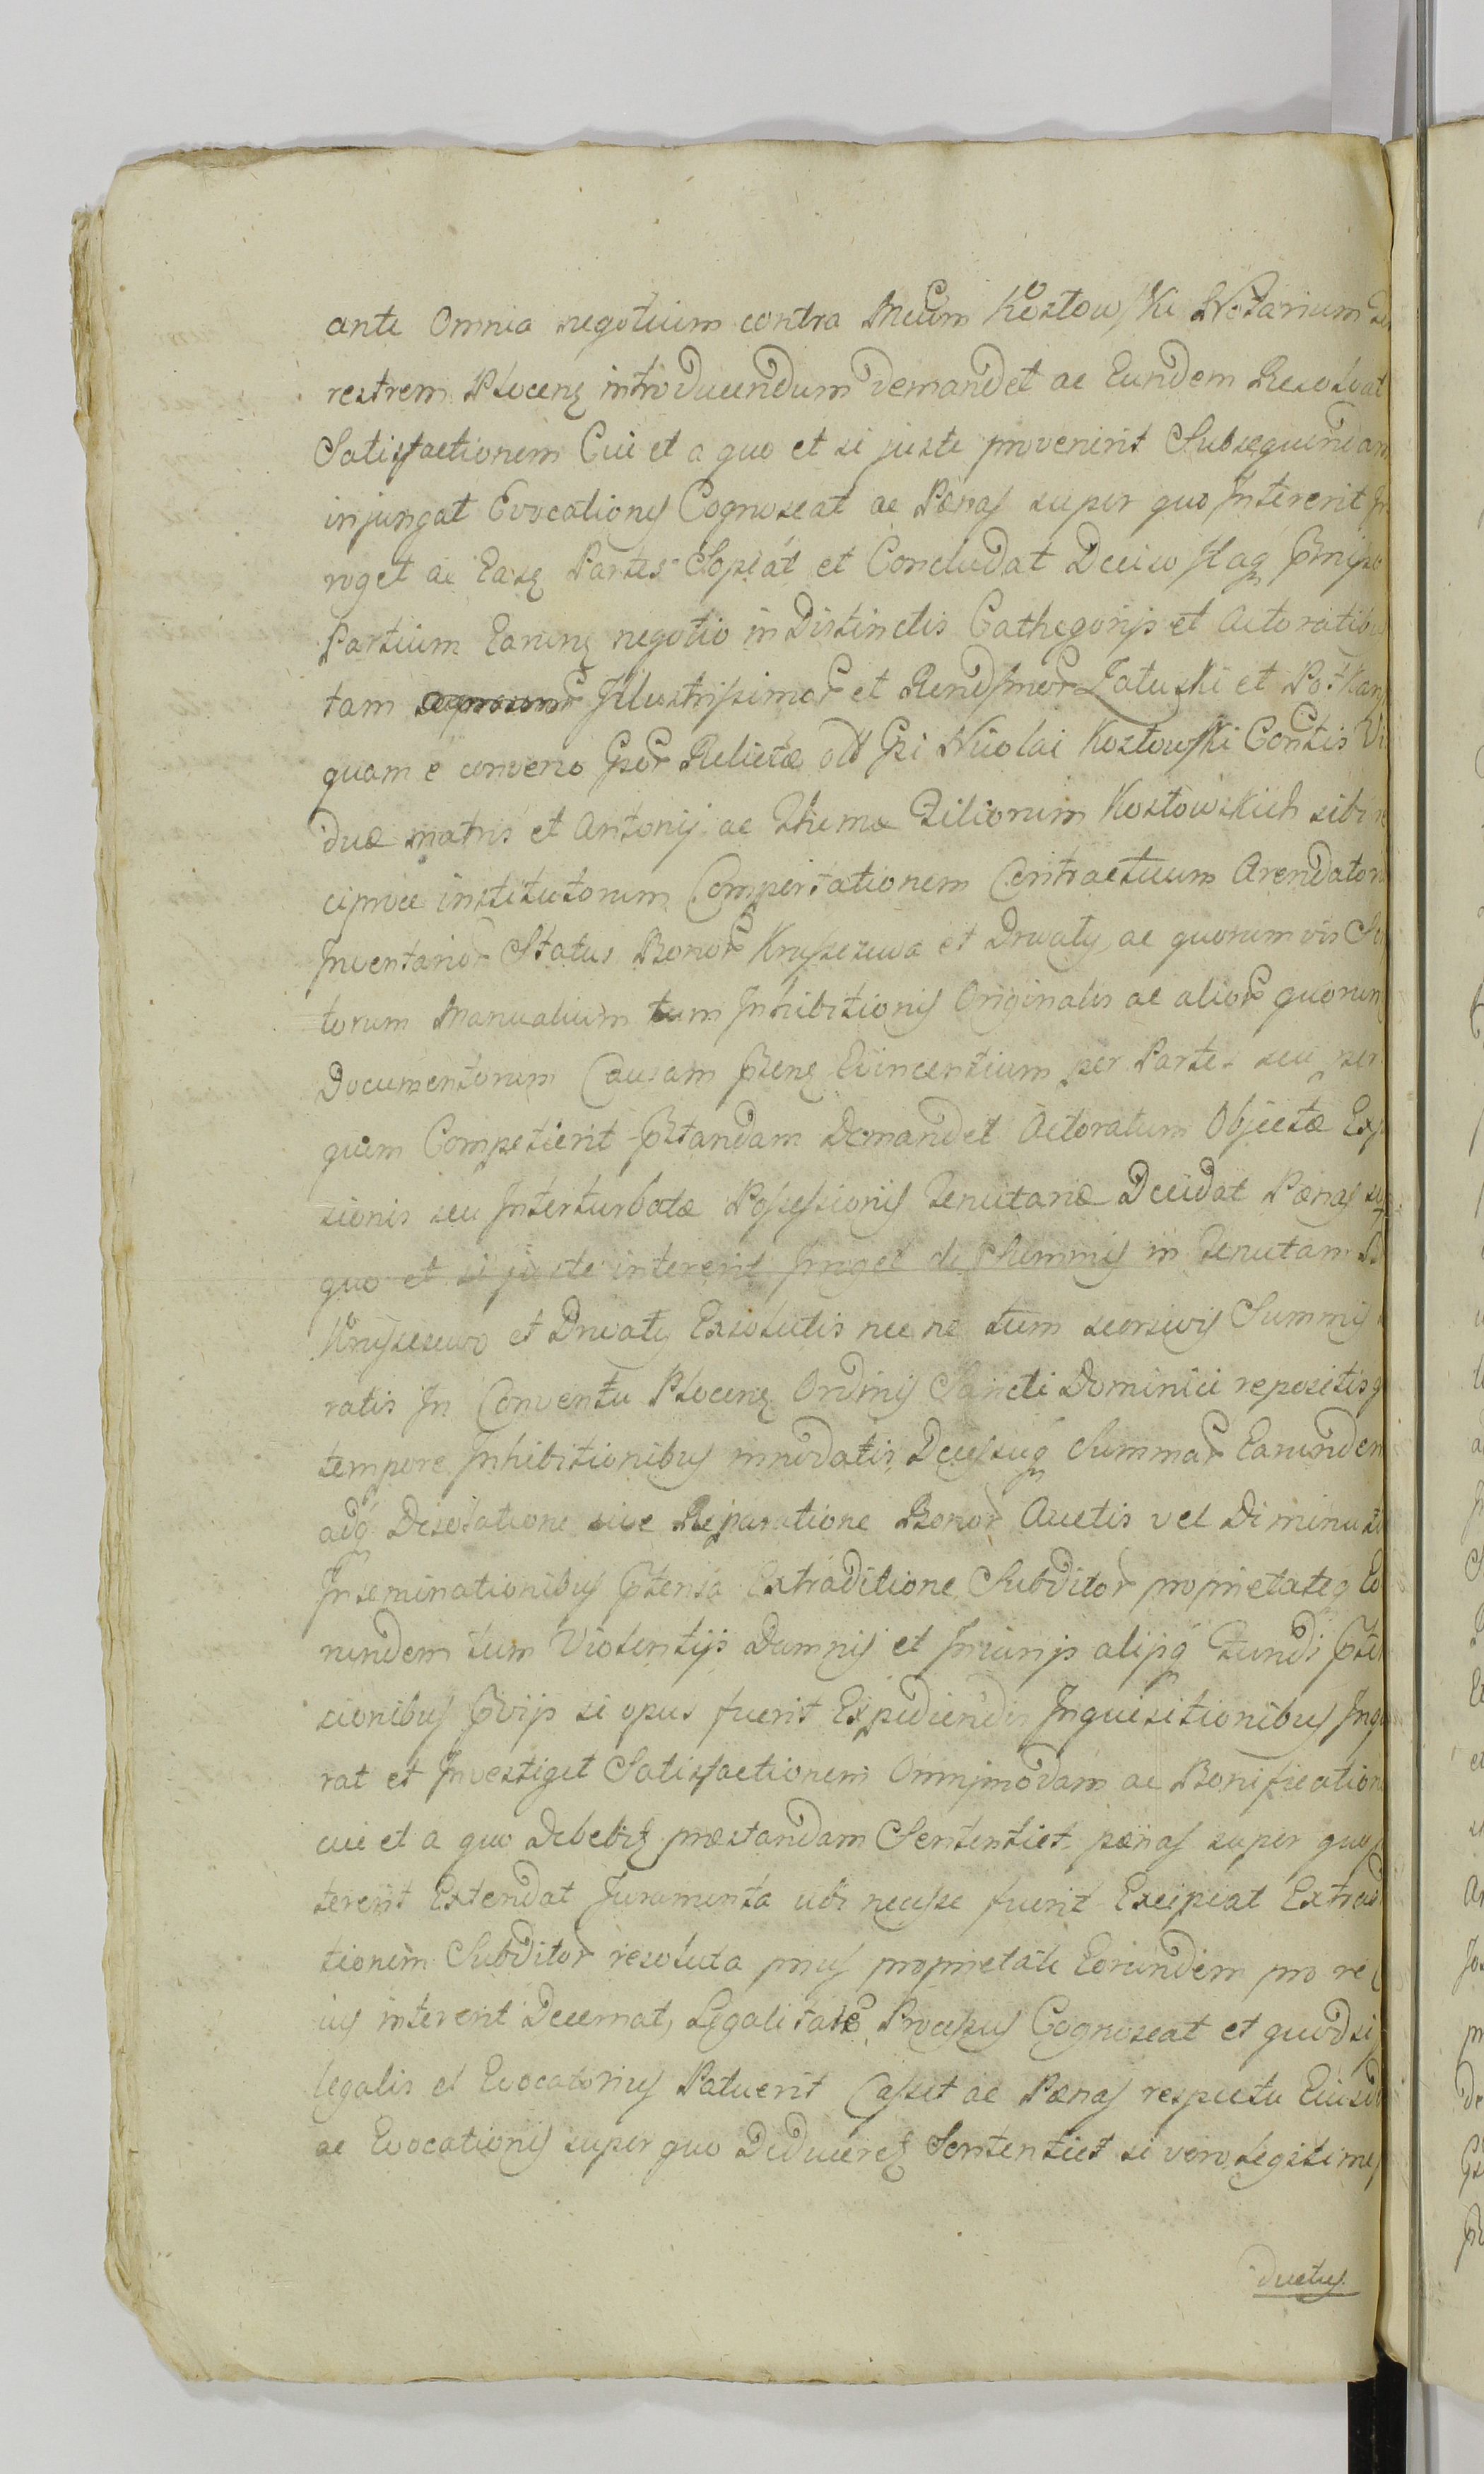 ante Omnia negotium contra Mcum Kozłowski Notarium Ter
restrem Plocens introducendum demandet ac Eundem Resolvat
Satisfactionem Cui et a quo et si juste provenerit Subsequendam
injungat Evocationis Cognoscat ac Pænas super quo Intererit Ir
roget ac Easq Partes Copiat et Concludat Deciso Itaq
Partium Earunq negotio in Distinctis Cathegorijs et Actoratibus
tam Illustrissimor et Rendissmor Załuski et
quam e converso Gsor Relictæ olt Gsi Nicolai Kozłowski Contis Vi
duæ matris et Antonij ac Thomæ Filiorum Kozłowskich sibi re
ciproce institutorum Comportationem Contractuum Arendator
Inventarior Status Bonor Kruszczewa et Drwały ac quorumvis Scrip
torum Manualium tum Inhibitionis Originalis ac alior quorum
Documentorum Causam Pstenq Evincentium per Partes seu per
quem Competierit Pstandam Demandet Actoratum Objectæ Exp
sionis seu Interturbatæ Possessionis Tenutariæ Decidat Pænas sup
quo et si juste intererit Irroget de Summis in Tenutam Bo
Kruszczewo et Drwały Exolutis nec ne tum seorsivis Summis
ratis In Conventu Plocenq Ordinis Sancti Dominici repositis q
tempore Inhibitionibus innodatis Decessuq Summar Earundem
adq Desolatione sive Reparatione Bonor Auctis vel Diminutis
Inseminationibus Ptensa Extraditione Subditor proprietateq Eo
rundem tum Violentijs Damnis et Injurijs alijsq Fundi Pten
sionibus Pvijs si opus fuerit Expediendis Inquisitionibus Inqui
rat et Investiget Satisfactionem Omnimodam ac Bonification
cui et a quo Debebitq præstandam Sententiet pænas super quo
tererit Extendat Juramenta ubi necesse fuerit Excipiat Extradi
tionem Subditor resoluta prius proprietate Eorundem pro re
ius intererit Decernat, Legalitate Processus Cognoscat et quod si
legalis et Evocatorius Patuerit Casset ac Pænas respectu Eiusd
ac Evocationis super quo Deduceretq Sententiet si vero legitime
ductus